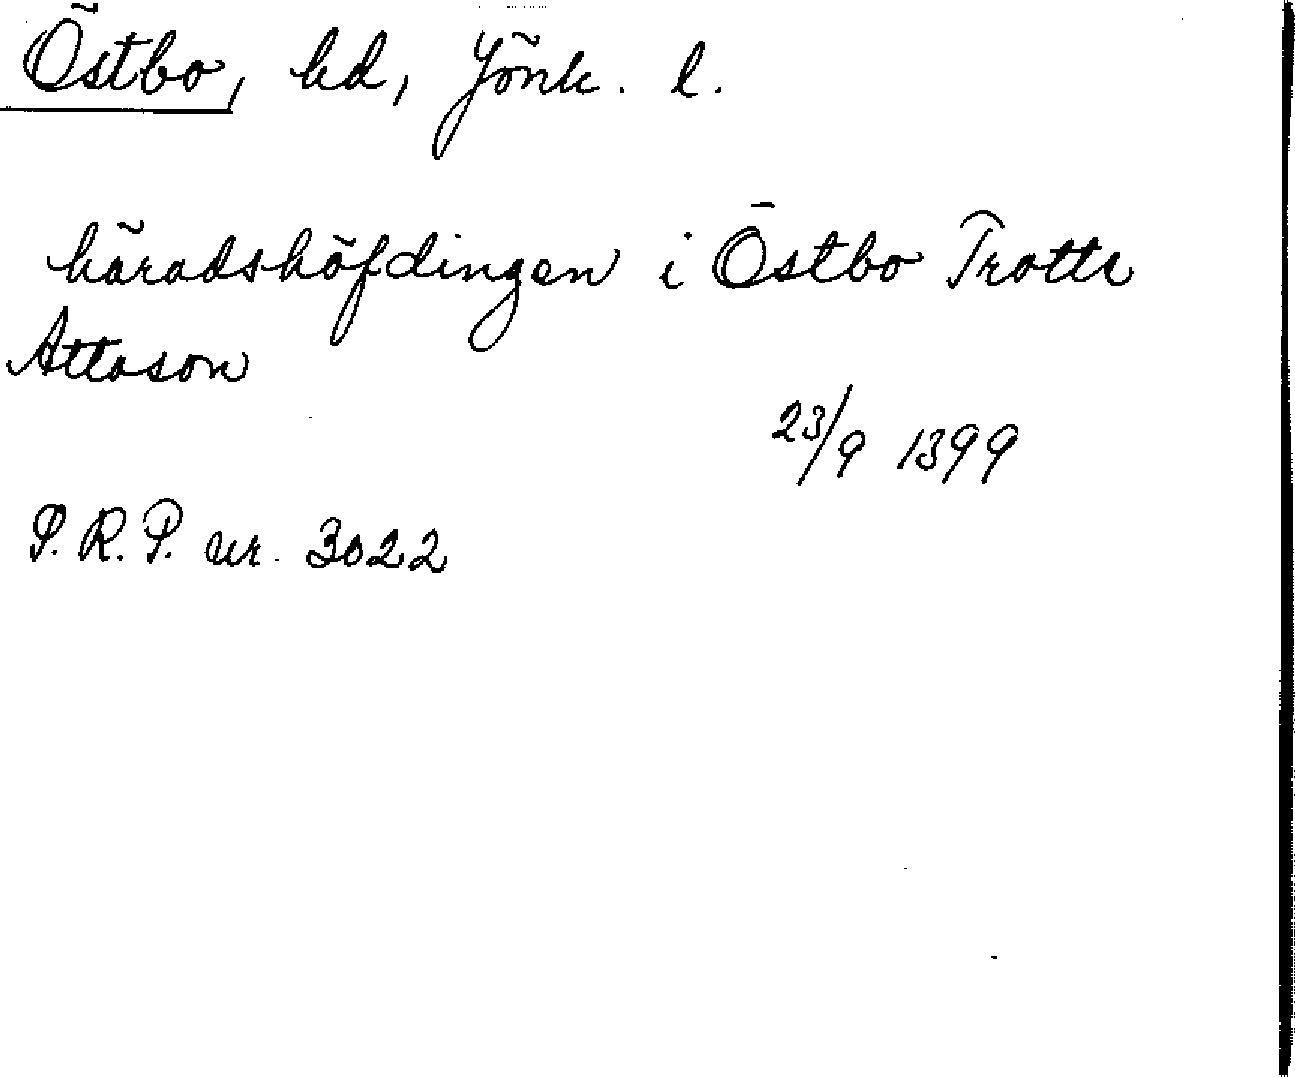 Östbo, hd, Jönk. l.
häradshöfdingen i Östbo Trotte
Attason
23/9 1399
P. R. P. nr. 3022